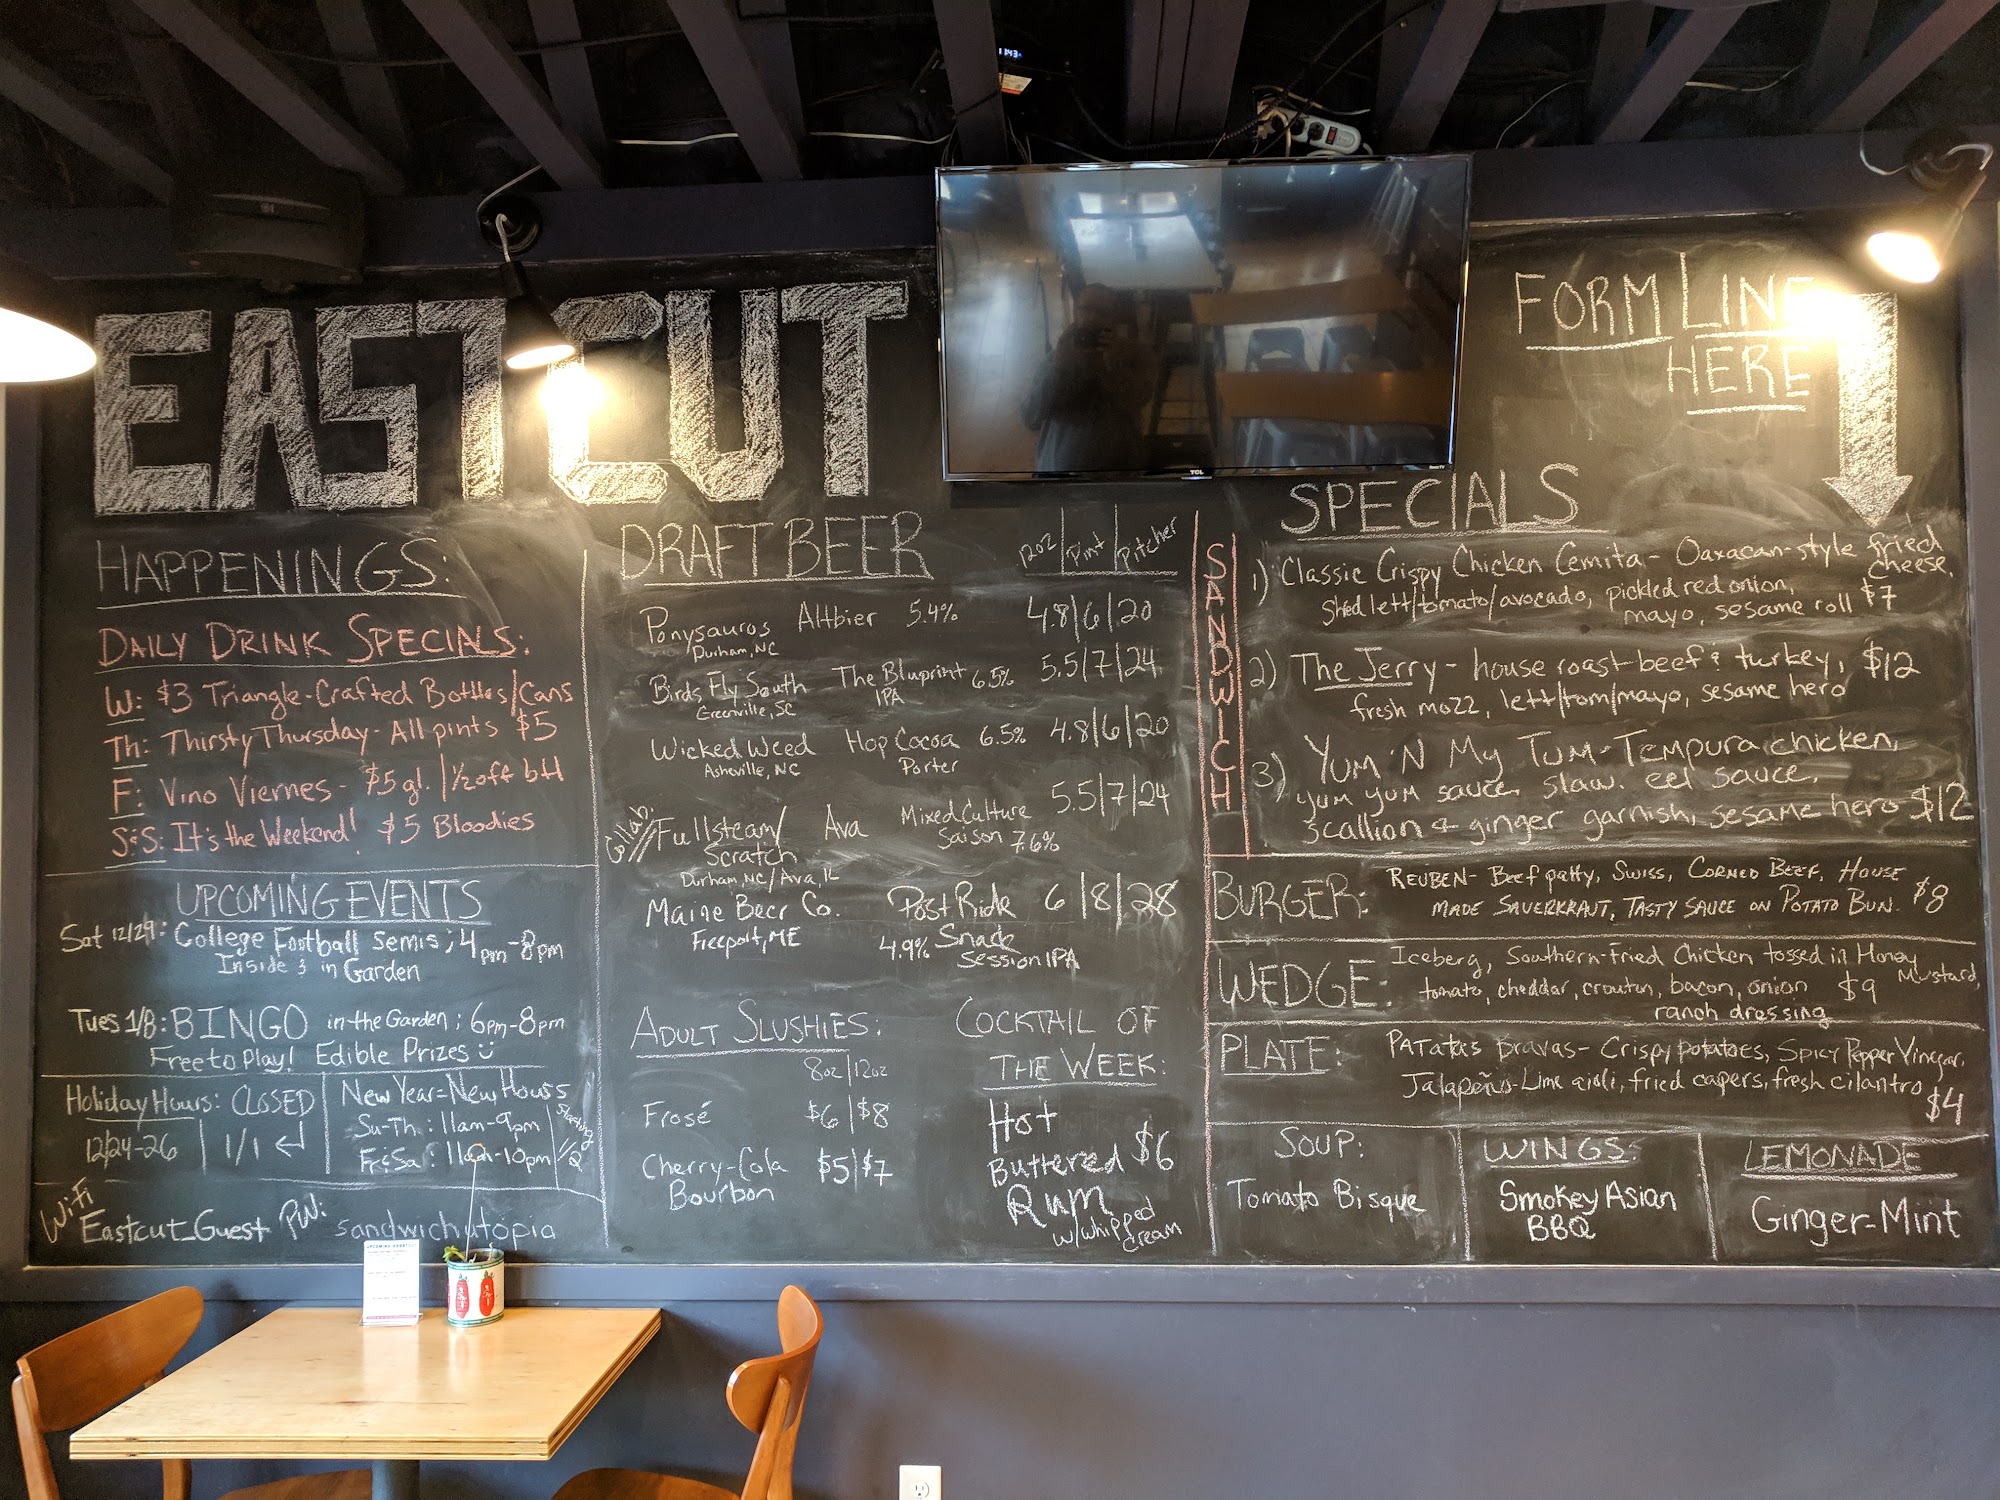 EASTCUT
FORM LINE
HERE
TCL
HAPPENINGS:
DAILY DRINK SPECIALS:
W: $3 Triangle-Crafted Bottles/Cans
Th: Thirsty Thursday - All pints $5
F: Vino Viernes - $5 gl. | 1/2 off btl
S&S: It's the Weekend! $5 Bloodies
UPCOMING EVENTS
Sat 12/29: College Football Semis; 4pm-8pm
Inside & in Garden
Tues 1/8: BINGO in-the Garden; 6pm-8pm
Free to Play! Edible Prizes
Holiday Hours: CLOSED
12/24-26 | 1/1
New Year=New Hours
Su-Th: 11am-9pm
Fr&Sa: 11am-10pm
Starting
WiFi
Eastcut_Guest PW: sandwichutopia
DRAFT BEER 12oz | Pint | Pitcher
Ponysaurus Altbier 5.4% 4.8|6|20
Durham, NC
Birds Fly South The Blueprint 6.5% 5.5|7|24
Greenville, SC IPA
Wicked Weed Hop Cocoa 6.5% 4.8|6|20
Asheville, NC Porter
Collab. Fullsteam/ Ava Mixed Culture 5.5|7|24
Scratch Saison 7.6%
Durham, NC/Ava, IL
Maine Beer Co. Post Ride 6|8|28
Freeport, ME 4.9% Snack
Session IPA
ADULT SLUSHIES:
8oz|12oz
Frosé $6|$8
Cherry-Cola $5|$7
Bourbon
COCKTAIL OF
THE WEEK:
Hot
Buttered $6
Rum
w/whipped
cream
SPECIALS
SANDWICH
1) Classic Crispy Chicken Cemita - Oaxacan-style fried
cheese,
shed lett/tomato/avocado, pickled red onion,
mayo, sesame roll $7
2) The Jerry - house roast beef & turkey, $12
fresh mozz, lett/tom/mayo, sesame hero
3) YUM 'N MY TUM - Tempura chicken,
yum yum sauce, slaw. eel sauce,
scallion & ginger garnish, sesame hero $12
BURGER: REUBEN - Beef patty, Swiss, Corned Beef, House
made Sauerkraut, Tasty Sauce on Potato Bun. $8
WEDGE: Iceberg, Southern-Fried Chicken tossed in Honey
Mustard,
tomato, cheddar, crouton, bacon, onion $9
ranch dressing
PLATE: PATatas Bravas - Crispy potatoes, Spicy Pepper Vinegar,
Jalapeño-Lime aioli, fried capers, fresh cilantro
$4
SOUP:
Tomato Bisque
WINGS:
Smokey Asian
BBQ
LEMONADE
Ginger-Mint